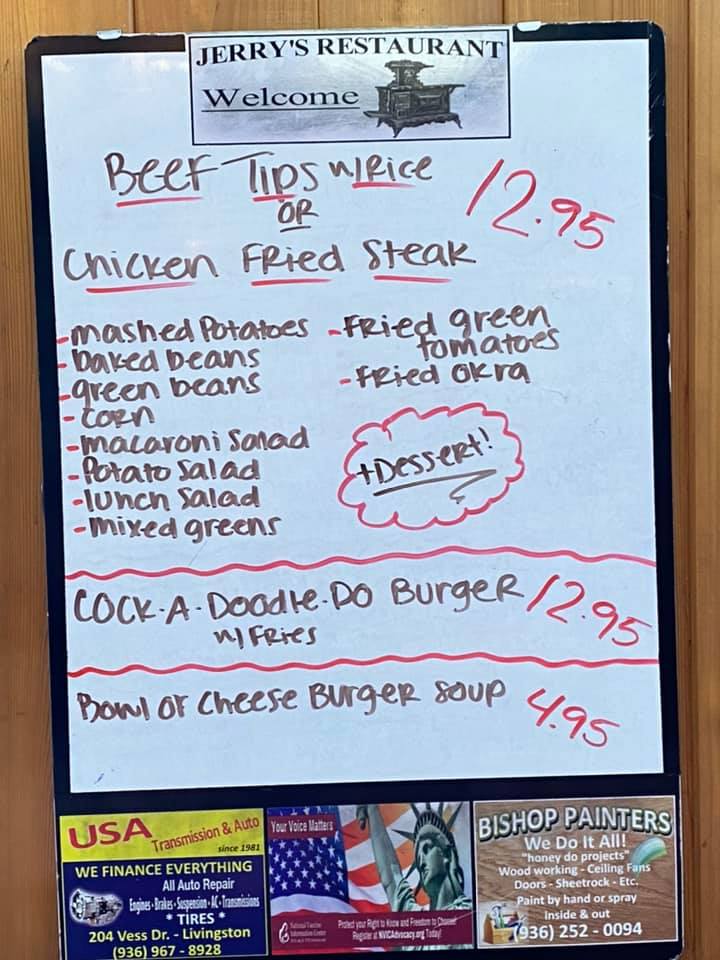 JERRY'S RESTAURANT
Welcome
Beef Tips w/Rice
OR
12.95
Chicken Fried Steak
-mashed Potatoes
-baked beans
-green beans
-corn
-macaroni Salad
-Potato Salad
-lunch Salad
-mixed greens
-Fried green
tomatoes
-Fried okra
+Dessert!
COCK-A-Doodle-Do Burger 12.95
w/ Fries
Bowl of Cheese Burger soup 4.95
USA Transmission & Auto
since 1981
WE FINANCE EVERYTHING
All Auto Repair
Engines-Brakes-Suspension-AC-Transmissions
* TIRES *
204 Vess Dr. - Livingston
(936) 967 - 8928
Your Voice Matters
National Vaccine
Information Center
Protect your Right to Know and Freedom to Choose
Register at NVICAdvocacy.org Today!
BISHOP PAINTERS
We Do It All!
"honey do projects"
Wood working - Ceiling Fans
Doors - Sheetrock - Etc.
Paint by hand or spray
Inside & out
(936) 252 - 0094